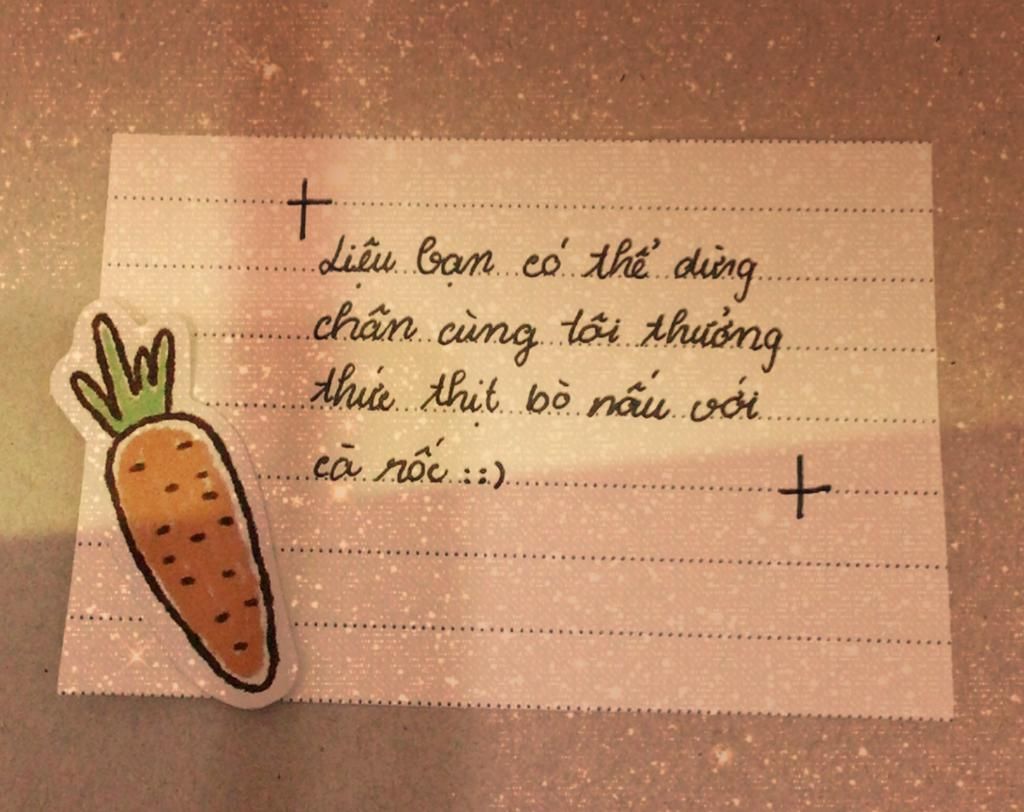 Liệu bạn có thể dừng
chân cùng tôi thưởng
thức thịt bò nấu với
cà rốc ::)